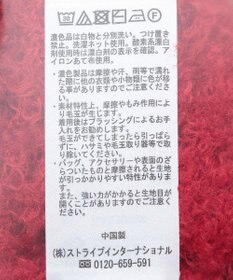 濃色品は白物と分別洗い。つけ置き
禁止。洗濯ネット使用。酸素系漂
白剤使用時は漂白剤の表示を確認。ア
イロンあて布使用。
・濃色製品は摩擦や汗、雨等で濡れ
た際に他の衣類や小物類に色が移
る事がありますのでご注意くださ
い。
・素材特性上、摩擦やもみ作用により
毛玉が生じます。
着用後はブラッシングによるお手
入れをお勧めします。
毛玉ができてしまったら引っぱらず
に、ハサミや毛玉取り器等で取
り除いてください。
・バッグ、アクセサリーや表面のざ
らついたものと摩擦されると生地
が引っかかりやすい特性がありま
す。
また、強い力がかかると生地目が
開くことがありますのでご注意く
ださい。
中国製
(株)ストライプインターナショナル
0120-659-591